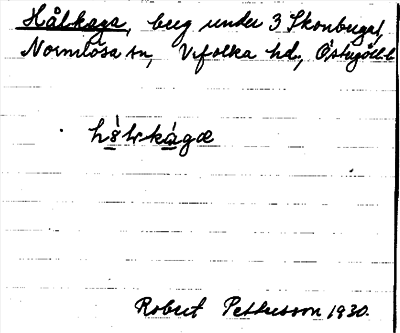 Hålkaga, berg under 3 Skonberga,
Normlösa sn, Vifolka hd., Östergötl.
Robert Pettersson 1930.